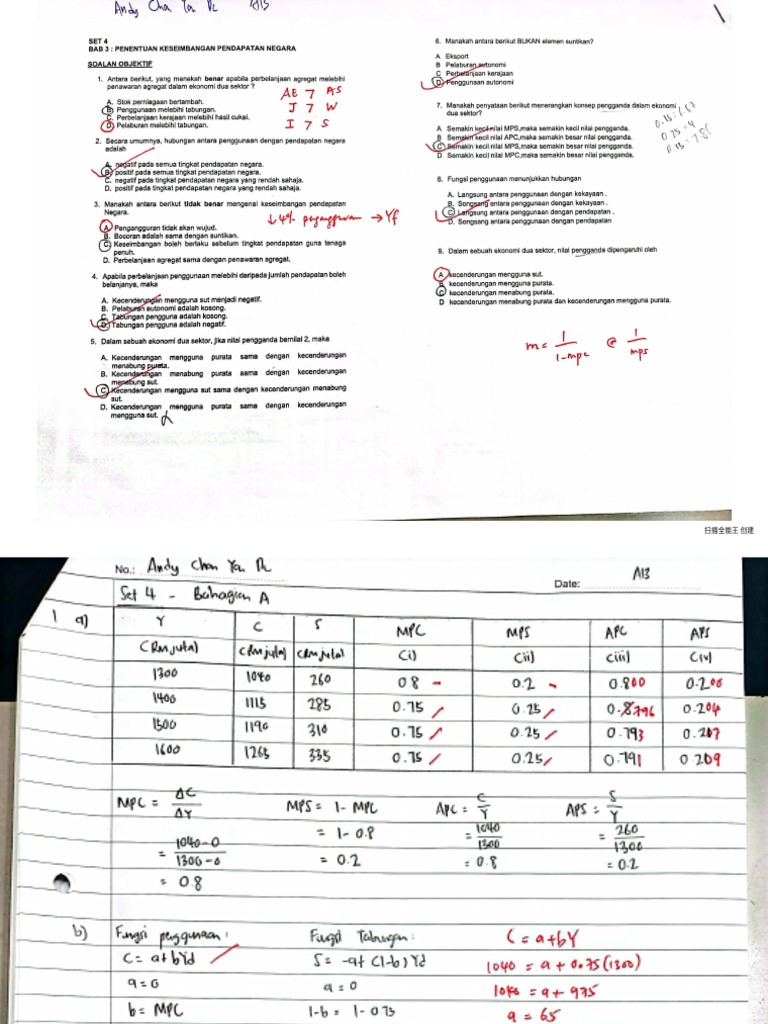 Andy Chan Yau De A13
SET 4
BAB 3 : PENENTUAN KESEIMBANGAN PENDAPATAN NEGARA
SOALAN OBJEKTIF
1. Antara berikut, yang manakah benar apabila perbelanjaan agregat melebihi
penawaran agregat dalam ekonomi dua sektor ?
A. Stok perniagaan bertambah.
B. Penggunaan melebihi tabungan.
C. Perbelanjaan kerajaan melebihi hasil cukai.
D. Pelaburan melebihi tabungan.
AE > AS
J > W
I > S
2. Secara umumnya, hubungan antara penggunaan dengan pendapatan negara
adalah
A. negatif pada semua tingkat pendapatan negara.
B. positif pada semua tingkat pendapatan negara.
C. negatif pada tingkat pendapatan negara yang rendah sahaja.
D. positif pada tingkat pendapatan negara yang rendah sahaja.
3. Manakah antara berikut tidak benar mengenai keseimbangan pendapatan
Negara.
↓4% pengangguran → Yf
A. Pengangguran tidak akan wujud.
B. Bocoran adalah sama dengan suntikan.
C. Keseimbangan boleh berlaku sebelum tingkat pendapatan guna tenaga
penuh.
D. Perbelanjaan agregat sama dengan penawaran agregat.
4. Apabila perbelanjaan penggunaan melebihi daripada jumlah pendapatan boleh
belanjanya, maka
A. Kecenderungan mengguna sut menjadi negatif.
B. Pelaburan autonomi adalah kosong.
C. Tabungan pengguna adalah kosong.
D. Tabungan pengguna adalah negatif.
5. Dalam sebuah ekonomi dua sektor, jika nilai pengganda bernilai 2, maka
A. Kecenderungan mengguna purata sama dengan kecenderungan
menabung purata.
B. Kecenderungan mengguna purata sama dengan kecenderungan
menabung sut.
C. Kecenderungan mengguna sut sama dengan kecenderungan menabung
sut.
D. Kecenderungan mengguna purata sama dengan kecenderungan
mengguna sut.
6. Manakah antara berikut BUKAN elemen suntikan?
A Eksport
B Pelaburan autonomi
C Perbelanjaan kerajaan
D Penggunaan autonomi
7. Manakah penyataan berikut menerangkan konsep pengganda dalam ekonomi
dua sektor?
A Semakin kecil nilai MPS,maka semakin kecil nilai pengganda.
B Semakin kecil nilai APC,maka semakin besar nilai pengganda.
C Semakin kecil nilai MPS,maka semakin besar nilai pengganda.
D Semakin kecil nilai MPC,maka semakin besar nilai pengganda.
8. Fungsi penggunaan menunjukkan hubungan
A. Langsung antara penggunaan dengan kekayaan .
B. Songsang antara penggunaan dengan kekayaan .
C. Langsung antara penggunaan dengan pendapatan .
D. Songsang antara penggunaan dengan pendapatan
9. Dalam sebuah ekonomi dua sektor, nilai pengganda dipengaruhi oleh
A kecenderungan mengguna sut.
B kecenderungan mengguna purata.
C kecenderungan menabung purata.
D kecenderungan menabung purata dan kecenderungan mengguna purata.
m = 1/1-mpc @ 1/mps
扫描全能王 创建
No.: Andy Chan Yau De
Date: A13
Set 4 - Bahagian A
1 a) Y C S MPC MPS APC APS
(RM juta) (RM juta) (RM juta) (i) (ii) (iii) (iv)
1300 1040 260 0.8 0.2 0.800 0.200
1400 1115 285 0.75 0.25 0.796 0.204
1500 1190 310 0.75 0.25 0.793 0.207
1600 1265 335 0.75 0.25 0.791 0.209
MPC = ΔC/ΔY MPS = 1 - MPC APC = C/Y APS = S/Y
= 1040-0/1300-0 = 1-0.8 = 1040/1300 = 260/1300
= 0.8 = 0.2 = 0.8 = 0.2
b) Fungsi penggunaan: Fungsi Tabungan: C = a+bY
C = a+bYd S = -a+(1-b)Yd 1040 = a + 0.75(1300)
a = 0 a = 0 1040 = a + 975
b = MPC 1-b = 1-0.75 a = 65